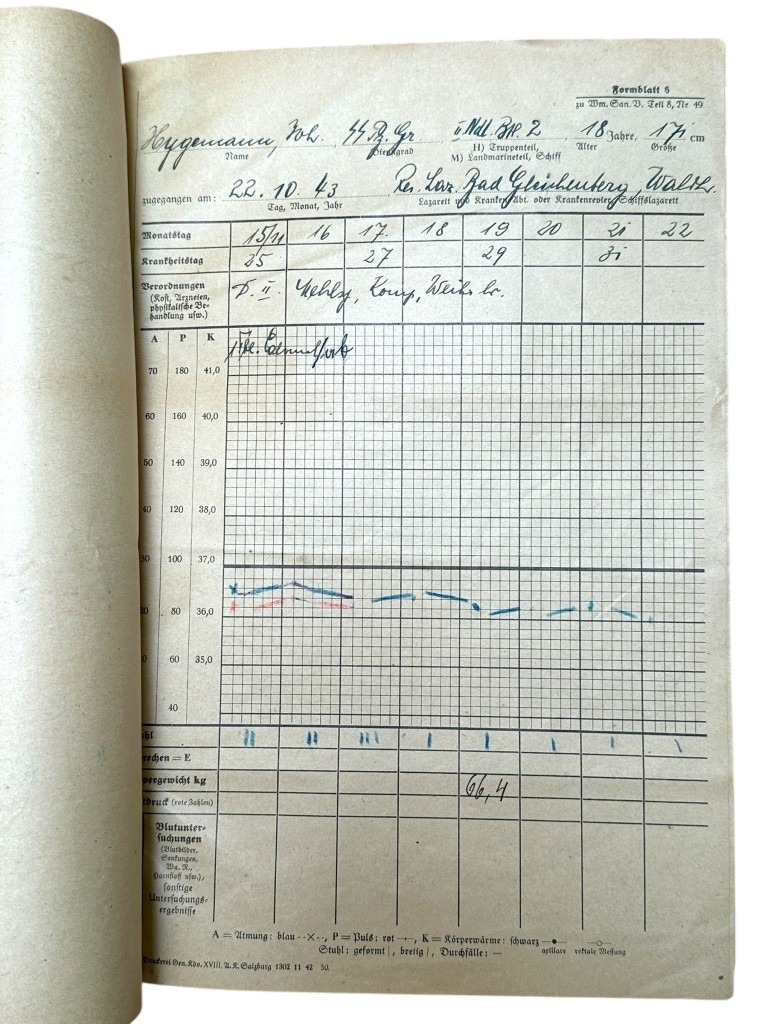 Formblatt 6
zu Wm. San. V. Teil 8, Nr 49
Hegemann, Joh. SS Pz. Gr 2 18 Jahre, 171 cm
Name Dienstgrad H) Truppenteil, M) Landmarineteil, Schiff Alter Größe
zugegangen am: 22. 10. 43 Res. Laz. Bad Gleichenberg,
Tag, Monat, Jahr Lazarett und Kranken-Abt. oder Krankenrevier, Schiffslazarett
Monatstag 15/11 16 17 18 19 20 21 22
Krankheitstag 25 27 29 31
Verordnungen
(Kost, Arzneien,
physikalische Be-
handlung usw.)
II.
A P K
70 180 41,0
60 160 40,0
50 140 39,0
40 120 38,0
30 100 37,0
80 36,0
60 35,0
40
rechen = E
pergewicht kg 66,4
druck (rote Zahlen)
Blutunter-
suchungen
(Blutbilder,
Senkungen,
Wa. R.,
Harnstoff usw.),
sonstige
Untersuchungs-
ergebnisse
A = Atmung: blau --X--, P = Puls: rot —, K = Körperwärme: schwarz axillare rektale Messung
Stuhl: geformt |, breiig /, Durchfälle: —
Druckerei Gen. Kdo. XVIII. A. K. Salzburg 1302 11 42 50.